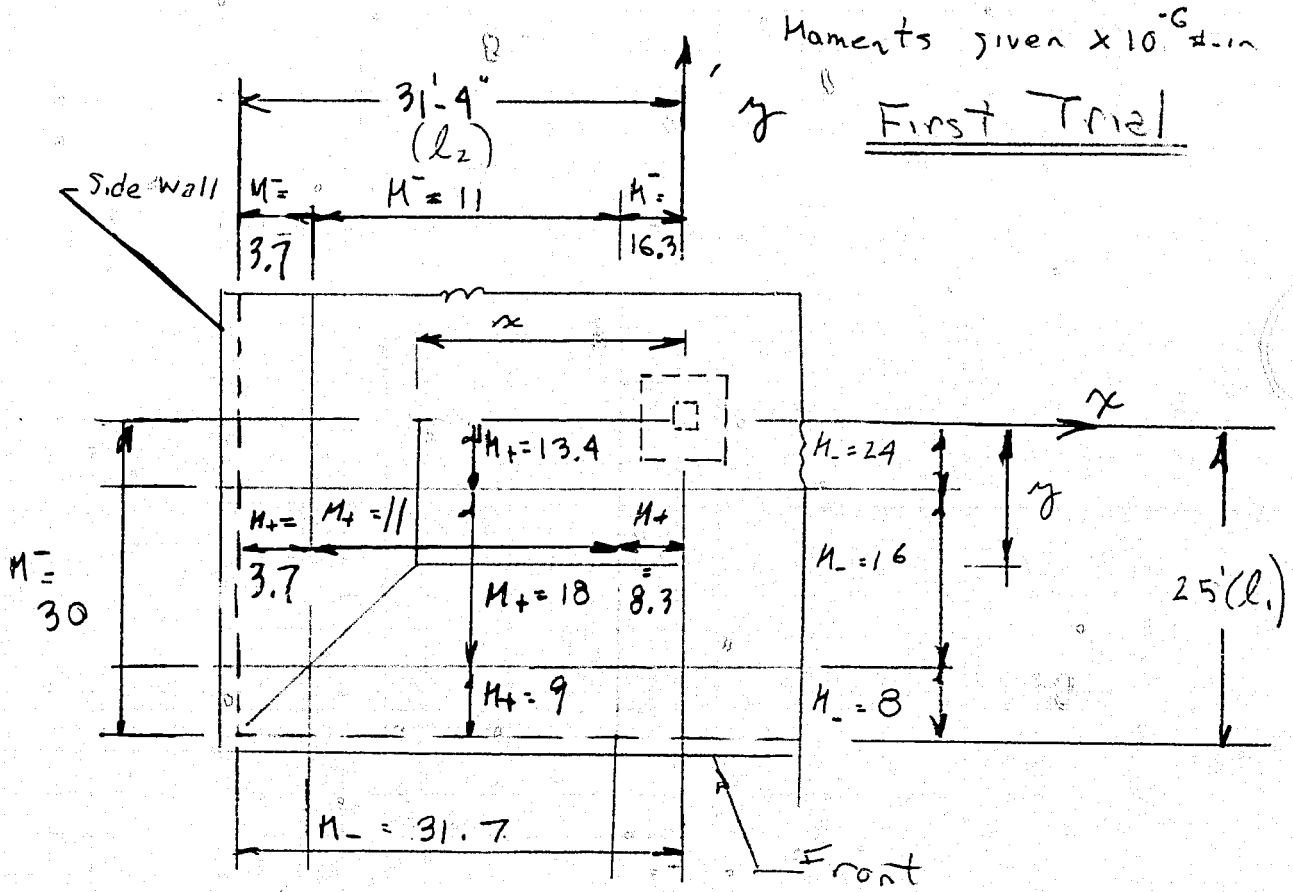 Moments given x 10⁻⁶ #-in
First Trial
31'-4"
(l₂)
y
Side Wall
M⁻=
3.7
M⁻= 11
M⁻=
16.3
x
x
M+=13.4
M_=24
y
M+=
3.7
M+=11
M+
=
8.3
M_=16
M⁻=
30
M+=18
25'(l₁)
M+= 9
M_=8
M_ = 31.7
Front